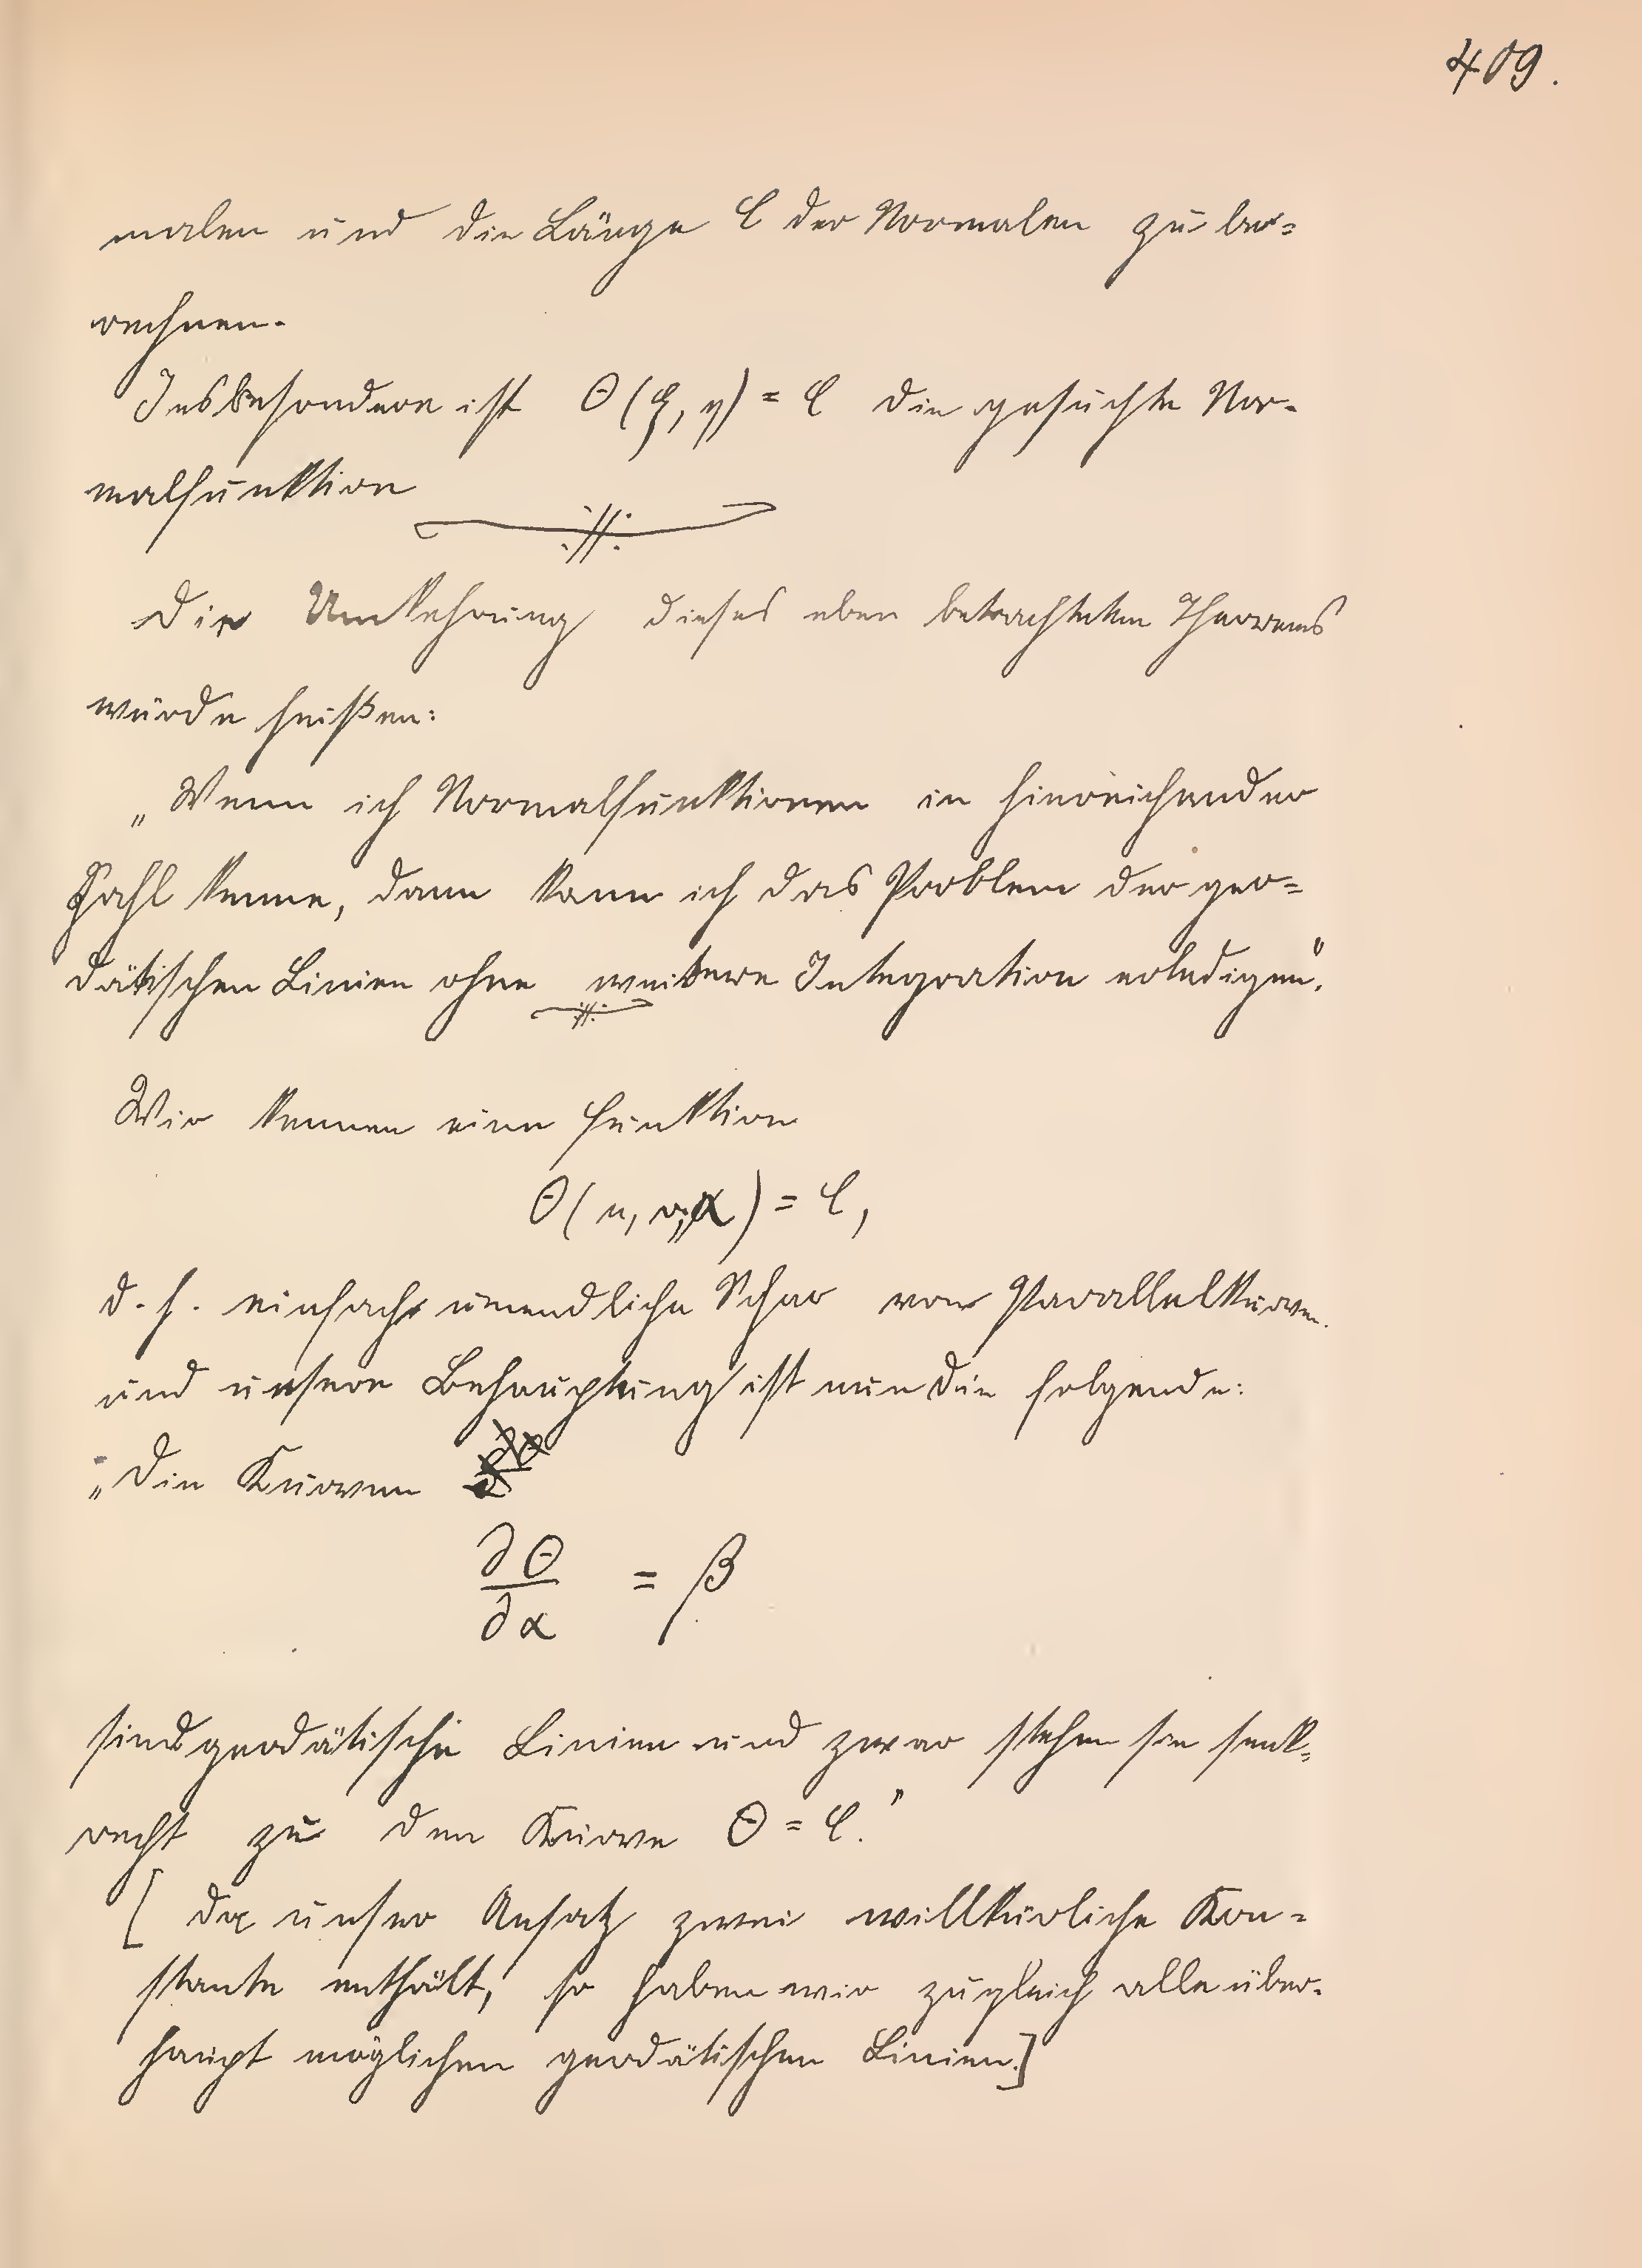 409.
malen und die Länge C der Normalen zu be=
rechnen.
Insbesondere ist Θ(ξ, η) = C die gesuchte Nor-
malfunktion
Die Umkehrung dieses eben betrachteten Theorems
würde heißen:
„Wenn ich Normalfunktionen in hinreichender
Zahl kenne, dann kann ich das Problem der geo=
dätischen Linien ohne weitere Integration erledigen".
Wir kennen eine Funktion
Θ(u, v, α) = C,
d. h. einfach unendliche Schar von Parallelkurven.
und unsere Behauptung ist nun die folgende:
„Die Kurven
∂Θ/∂α = β
sind geodätische Linien und zwar stehen sie senk=
recht zu den Kurve Θ = C."
[ da unser Ansatz zwei willkürliche Kon=
stante enthält, so haben wir zugleich alle über-
haupt möglichen geodätischen Linien.]